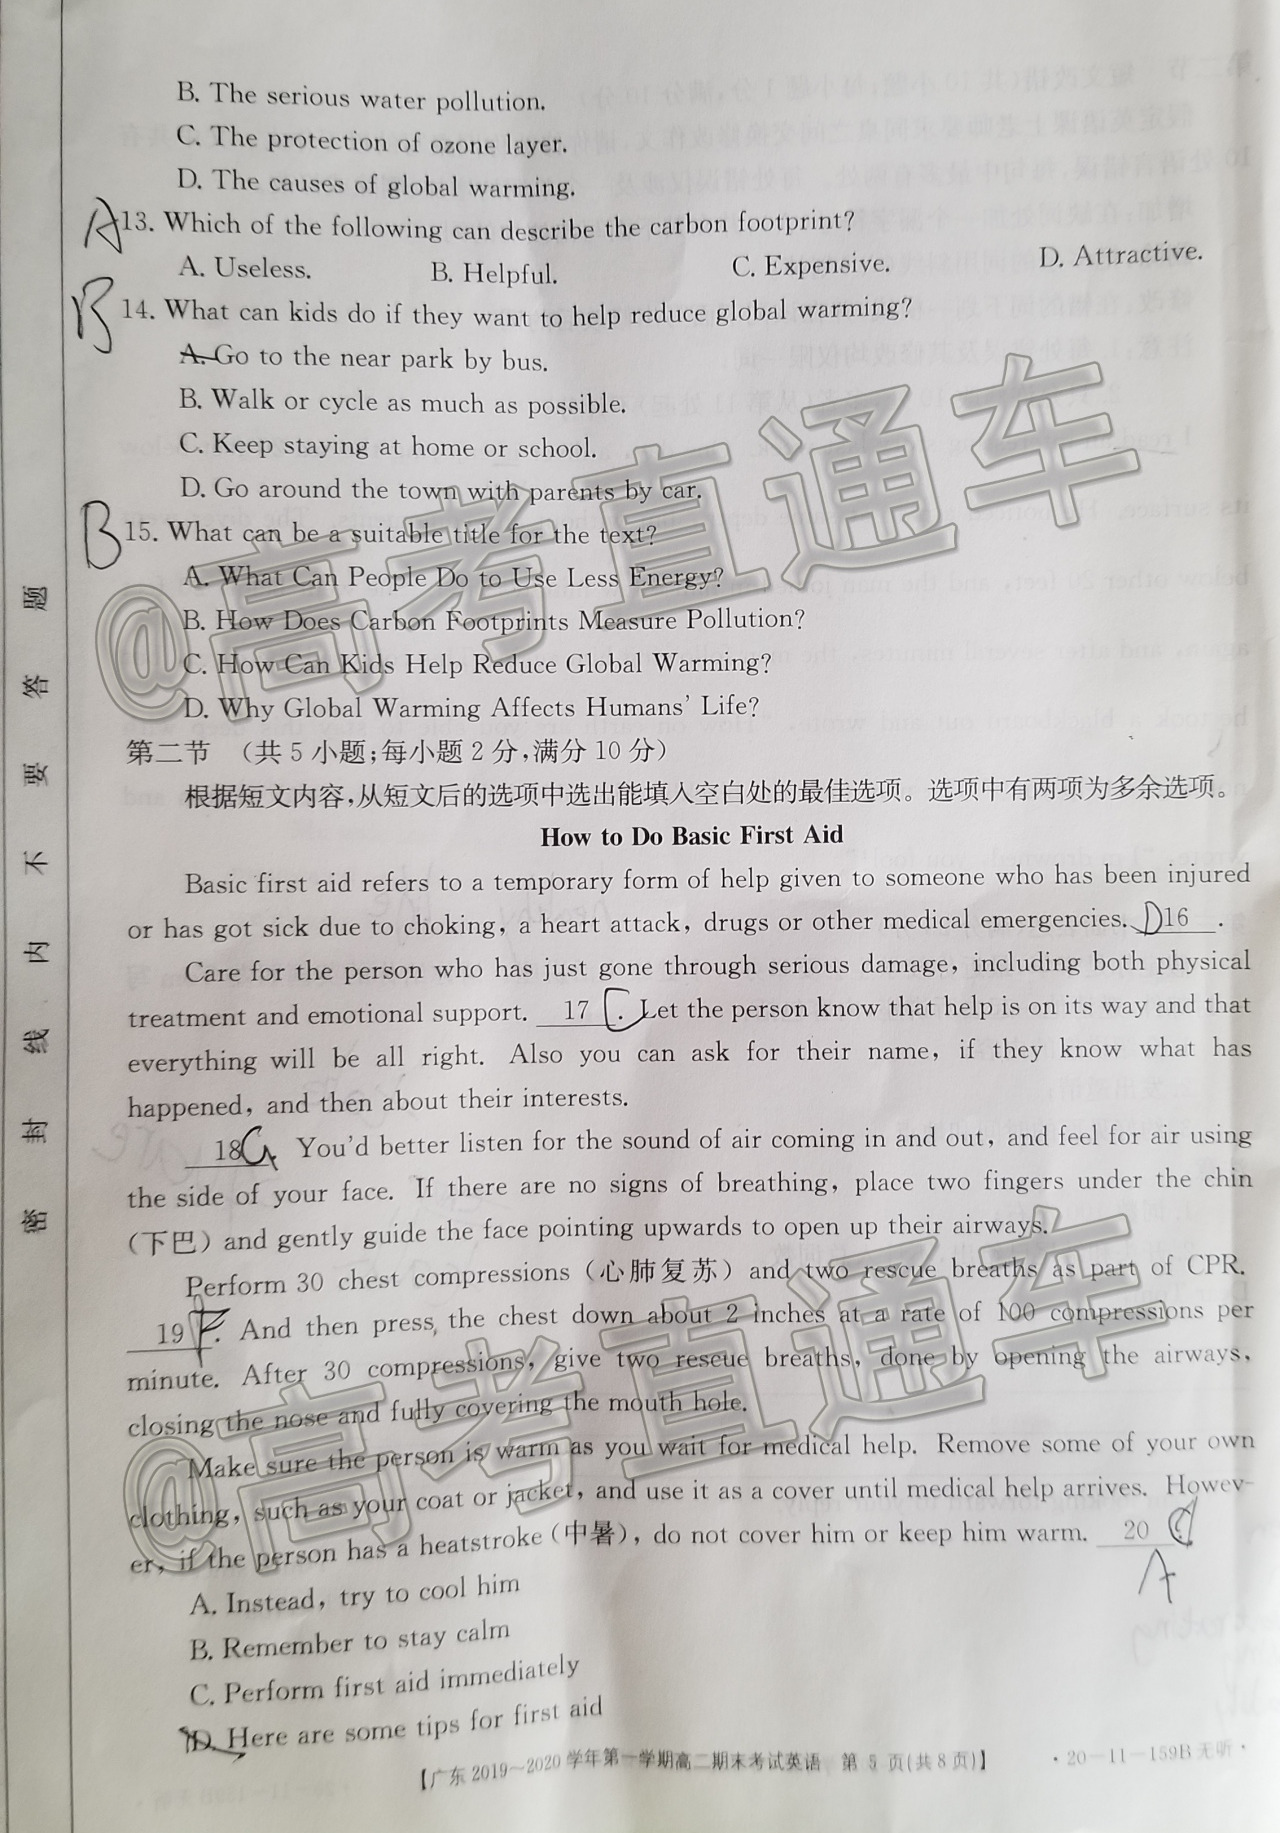 B. The serious water pollution.
C. The protection of ozone layer.
D. The causes of global warming.
A 13. Which of the following can describe the carbon footprint?
A. Useless. B. Helpful. C. Expensive. D. Attractive.
B 14. What can kids do if they want to help reduce global warming?
A. Go to the near park by bus.
B. Walk or cycle as much as possible.
C. Keep staying at home or school.
D. Go around the town with parents by car.
B 15. What can be a suitable title for the text?
A. What Can People Do to Use Less Energy?
B. How Does Carbon Footprints Measure Pollution?
C. How Can Kids Help Reduce Global Warming?
D. Why Global Warming Affects Humans' Life?
第二节 (共5小题;每小题2分,满分10分)
根据短文内容,从短文后的选项中选出能填入空白处的最佳选项。选项中有两项为多余选项。
How to Do Basic First Aid
Basic first aid refers to a temporary form of help given to someone who has been injured
or has got sick due to choking, a heart attack, drugs or other medical emergencies. D 16 .
Care for the person who has just gone through serious damage, including both physical
treatment and emotional support. 17 C . Let the person know that help is on its way and that
everything will be all right. Also you can ask for their name, if they know what has
happened, and then about their interests.
18 G . You'd better listen for the sound of air coming in and out, and feel for air using
the side of your face. If there are no signs of breathing, place two fingers under the chin
(下巴) and gently guide the face pointing upwards to open up their airways.
Perform 30 chest compressions (心肺复苏) and two rescue breaths as part of CPR.
19 F . And then press, the chest down about 2 inches at a rate of 100 compressions per
minute. After 30 compressions, give two rescue breaths, done by opening the airways,
closing the nose and fully covering the mouth hole.
Make sure the person is warm as you wait for medical help. Remove some of your own
clothing, such as your coat or jacket, and use it as a cover until medical help arrives. Howev-
er, if the person has a heatstroke (中暑), do not cover him or keep him warm. 20 .
A
A. Instead, try to cool him
B. Remember to stay calm
C. Perform first aid immediately
D. Here are some tips for first aid
【广东2019~2020学年第一学期高二期末考试英语 第5页(共8页)】 ·20-11-159B无听·
密封线内不要答题
@高考直通车
@高考直通车